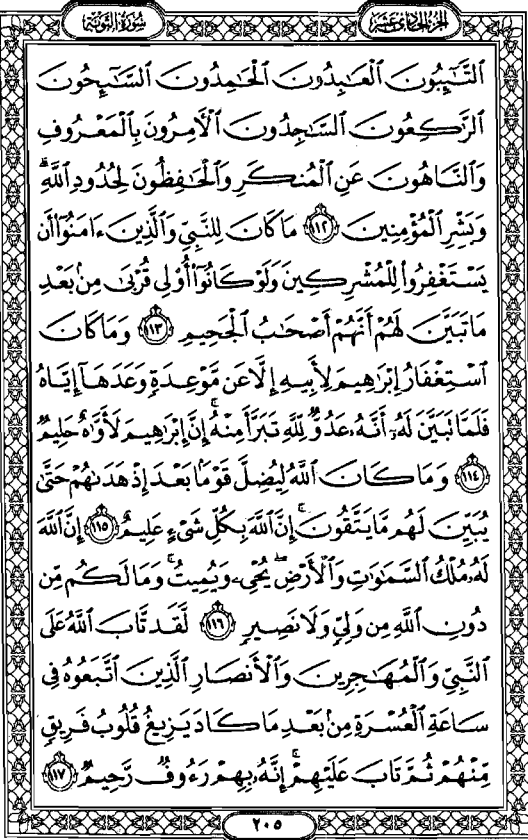 سُورَةُ التَّوْبَةِ
الجُزْءُ الحَادِي عَشَرَ
ٱلتَّٰٓئِبُونَ ٱلْعَٰبِدُونَ ٱلْحَٰمِدُونَ ٱلسَّٰٓئِحُونَ
ٱلرَّٰكِعُونَ ٱلسَّٰجِدُونَ ٱلْأٓمِرُونَ بِٱلْمَعْرُوفِ
وَٱلنَّاهُونَ عَنِ ٱلْمُنكَرِ وَٱلْحَٰفِظُونَ لِحُدُودِ ٱللَّهِۗ
وَبَشِّرِ ٱلْمُؤْمِنِينَ ١١٢ مَا كَانَ لِلنَّبِيِّ وَٱلَّذِينَ ءَامَنُوٓا۟ أَن
يَسْتَغْفِرُوا۟ لِلْمُشْرِكِينَ وَلَوْ كَانُوٓا۟ أُو۟لِى قُرْبَىٰ مِنۢ بَعْدِ
مَا تَبَيَّنَ لَهُمْ أَنَّهُمْ أَصْحَٰبُ ٱلْجَحِيمِ ١١٣ وَمَا كَانَ
ٱسْتِغْفَارُ إِبْرَٰهِيمَ لِأَبِيهِ إِلَّا عَن مَّوْعِدَةٍ وَعَدَهَآ إِيَّاهُ
فَلَمَّا تَبَيَّنَ لَهُۥٓ أَنَّهُۥ عَدُوٌّ لِّلَّهِ تَبَرَّأَ مِنْهُۚ إِنَّ إِبْرَٰهِيمَ لَأَوَّٰهٌ حَلِيمٌ
١١٤ وَمَا كَانَ ٱللَّهُ لِيُضِلَّ قَوْمًۢا بَعْدَ إِذْ هَدَىٰهُمْ حَتَّىٰ
يُبَيِّنَ لَهُم مَّا يَتَّقُونَۚ إِنَّ ٱللَّهَ بِكُلِّ شَىْءٍ عَلِيمٌ ١١٥ إِنَّ ٱللَّهَ
لَهُۥ مُلْكُ ٱلسَّمَٰوَٰتِ وَٱلْأَرْضِۖ يُحْىِۦ وَيُمِيتُۚ وَمَا لَكُم مِّن
دُونِ ٱللَّهِ مِن وَلِىٍّ وَلَا نَصِيرٍ ١١٦ لَّقَد تَّابَ ٱللَّهُ عَلَى
ٱلنَّبِىِّ وَٱلْمُهَٰجِرِينَ وَٱلْأَنصَارِ ٱلَّذِينَ ٱتَّبَعُوهُ فِى
سَاعَةِ ٱلْعُسْرَةِ مِنۢ بَعْدِ مَا كَادَ يَزِيغُ قُلُوبُ فَرِيقٍ
مِّنْهُمْ ثُمَّ تَابَ عَلَيْهِمْۚ إِنَّهُۥ بِهِمْ رَءُوفٌ رَّحِيمٌ ١١٧
٢٠٥